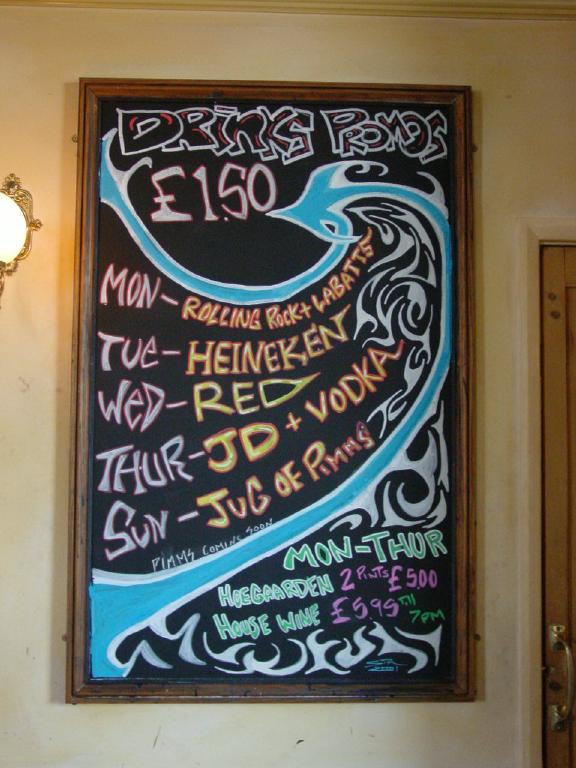 DRINKS PROMOS
£1.50
MON- ROLLING ROCK + LABATTS
TUE- HEINEKEN
WED- RED
THUR- JD + VODKA
SUN - JUG OF PIMMS
PIMMS COMING SOON
MON-THUR
HOEGAARDEN 2 PINTS £5.00
HOUSE WINE £5.95 TIL 7PM